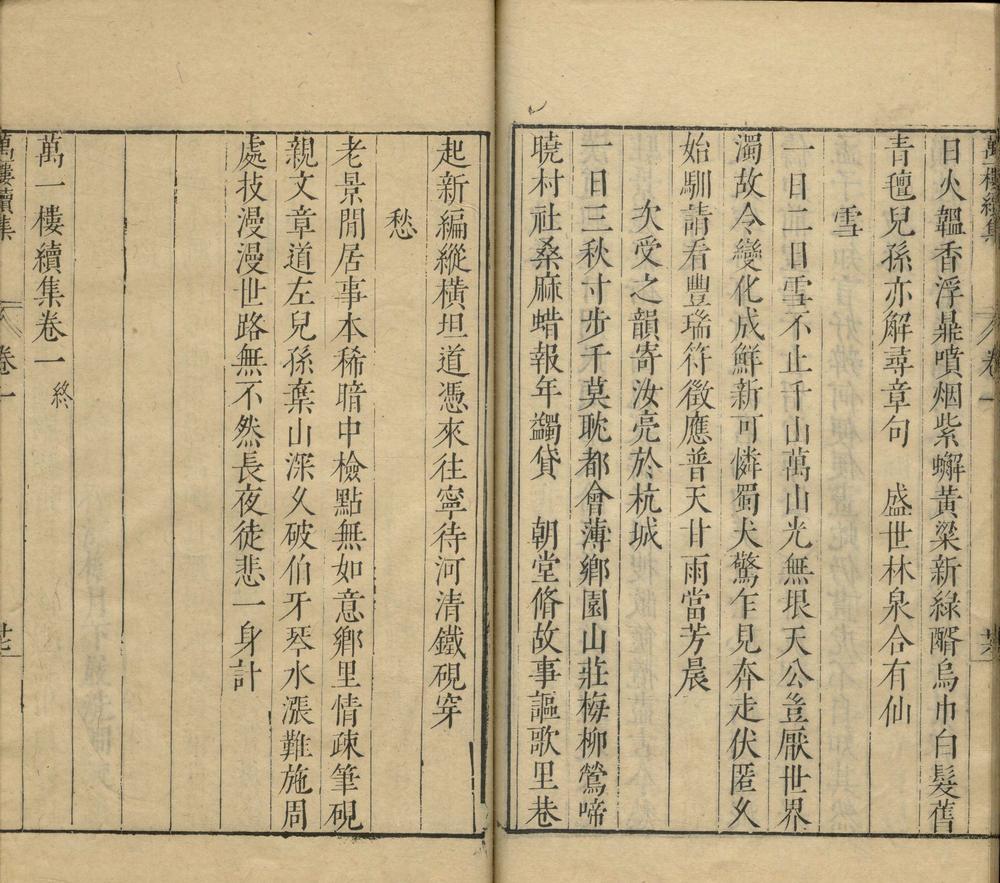 萬一樓續集 卷一 共
日火韞香浮鼎噴烟紫蠏黃梁新綠醑烏巾白髮舊
青氊兒孫亦解尋章句　盛世林泉合有仙
雪
一日二日雪不止千山萬山光無垠天公豈厭世界
濁故令變化成鮮新可憐蜀犬驚乍見奔走伏匿久
始馴請看豐瑞符徵應普天甘雨當芳晨
次受之韻寄汝亮於杭城
一日三秋寸步千莫耽都會薄鄉園山莊梅柳鶯啼
曉村社桑麻蜡報年蠲貸　朝堂脩故事謳歌里巷
起新編縱橫坦道憑來往寧待河清鐵硯穿
愁
老景閒居事本稀暗中檢點無如意鄉里情疎筆硯
親文章道左兒孫棄山深久破伯牙琴水漲難施周
處技漫漫世路無不然長夜徒悲一身計
萬一樓續集卷一 終
萬一樓續集 卷一 廿七